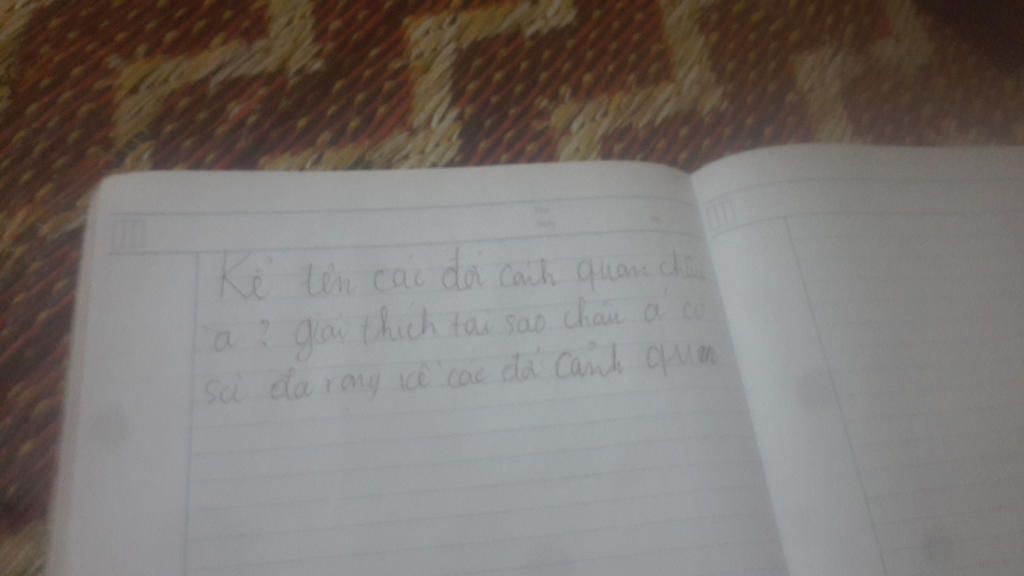 Kể tên các đới cảnh quan châu
á ? giải thích tại sao châu á có
sự đa rạng về các đớ cảnh quan